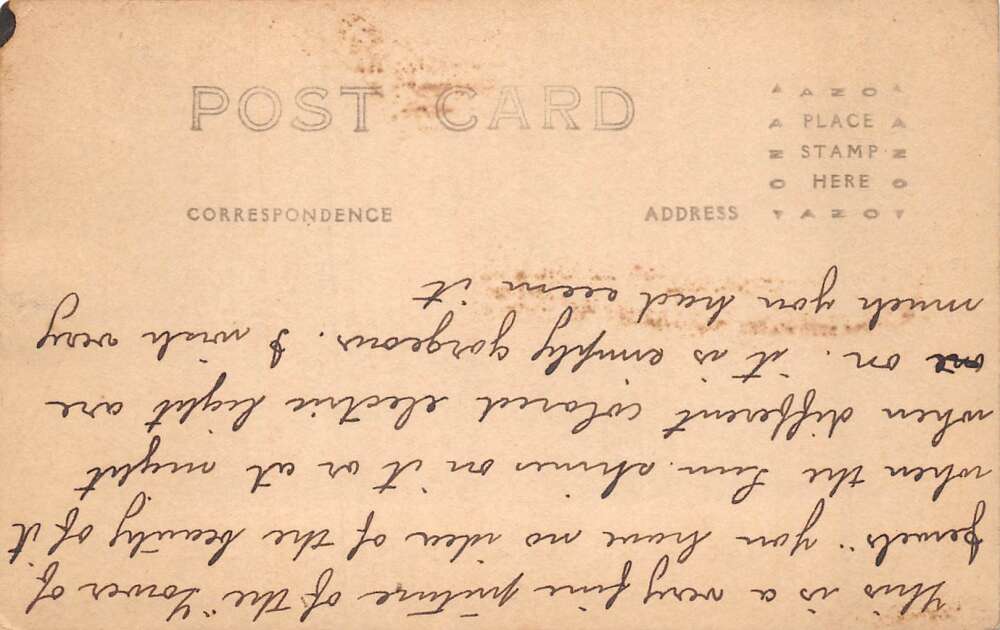 POST CARD
CORRESPONDENCE
ADDRESS
AZO
PLACE
STAMP
HERE
AZO
AZO
AZO
This is a very fine picture of the "Tower of
Jewels" you have no idea of the beauty of it
when the Sun shines on it or at night
when different colored electric light are
on. it is simply gorgeous. I wish very
much you had seen it